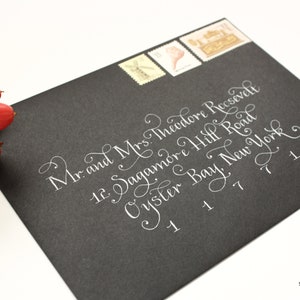 Mr. and Mrs. Theodore Roosevelt
12 Sagamore Hill Road
Oyster Bay, New York
1 1 7 7 1